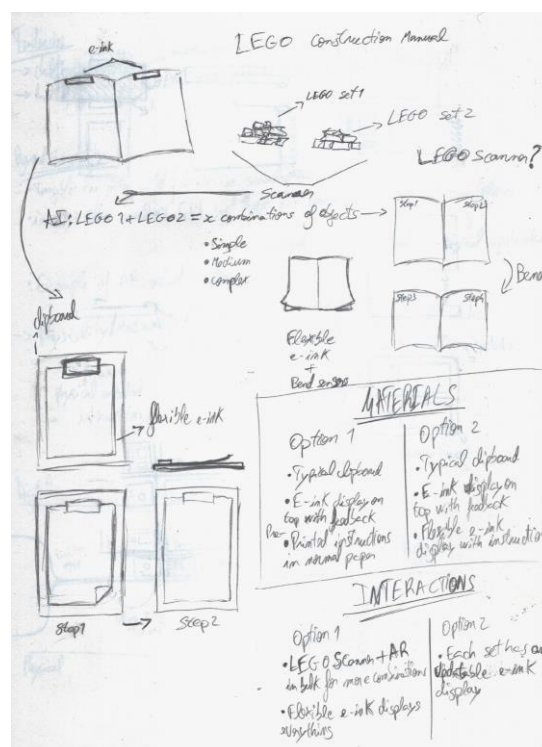 LEGO Construction Manual
e-ink
LEGO set 1
LEGO set 2
LEGO Scanner?
Scanner
AI: LEGO 1 + LEGO 2 = x combinations of objects
• Simple
• Medium
• complex
Step1
Step2
Bend
Step3
Step4
Flexible
e-ink
+
Bend sensors
clipboard
flexible e-ink
Step1
Step2
MATERIALS
Option 1
• Typical clipboard
• E-ink display on
top with feedback
• Printed instructions
in normal paper
Option 2
• Typical clipboard
• E-ink display on
top with feedback
• Flexible e-ink
display with instruction
INTERACTIONS
Option 1
• LEGO Scanner + AR
in bulk for more combinations
• Flexible e-ink displays
everything
Option 2
• Each set has an
updatable e-ink
display